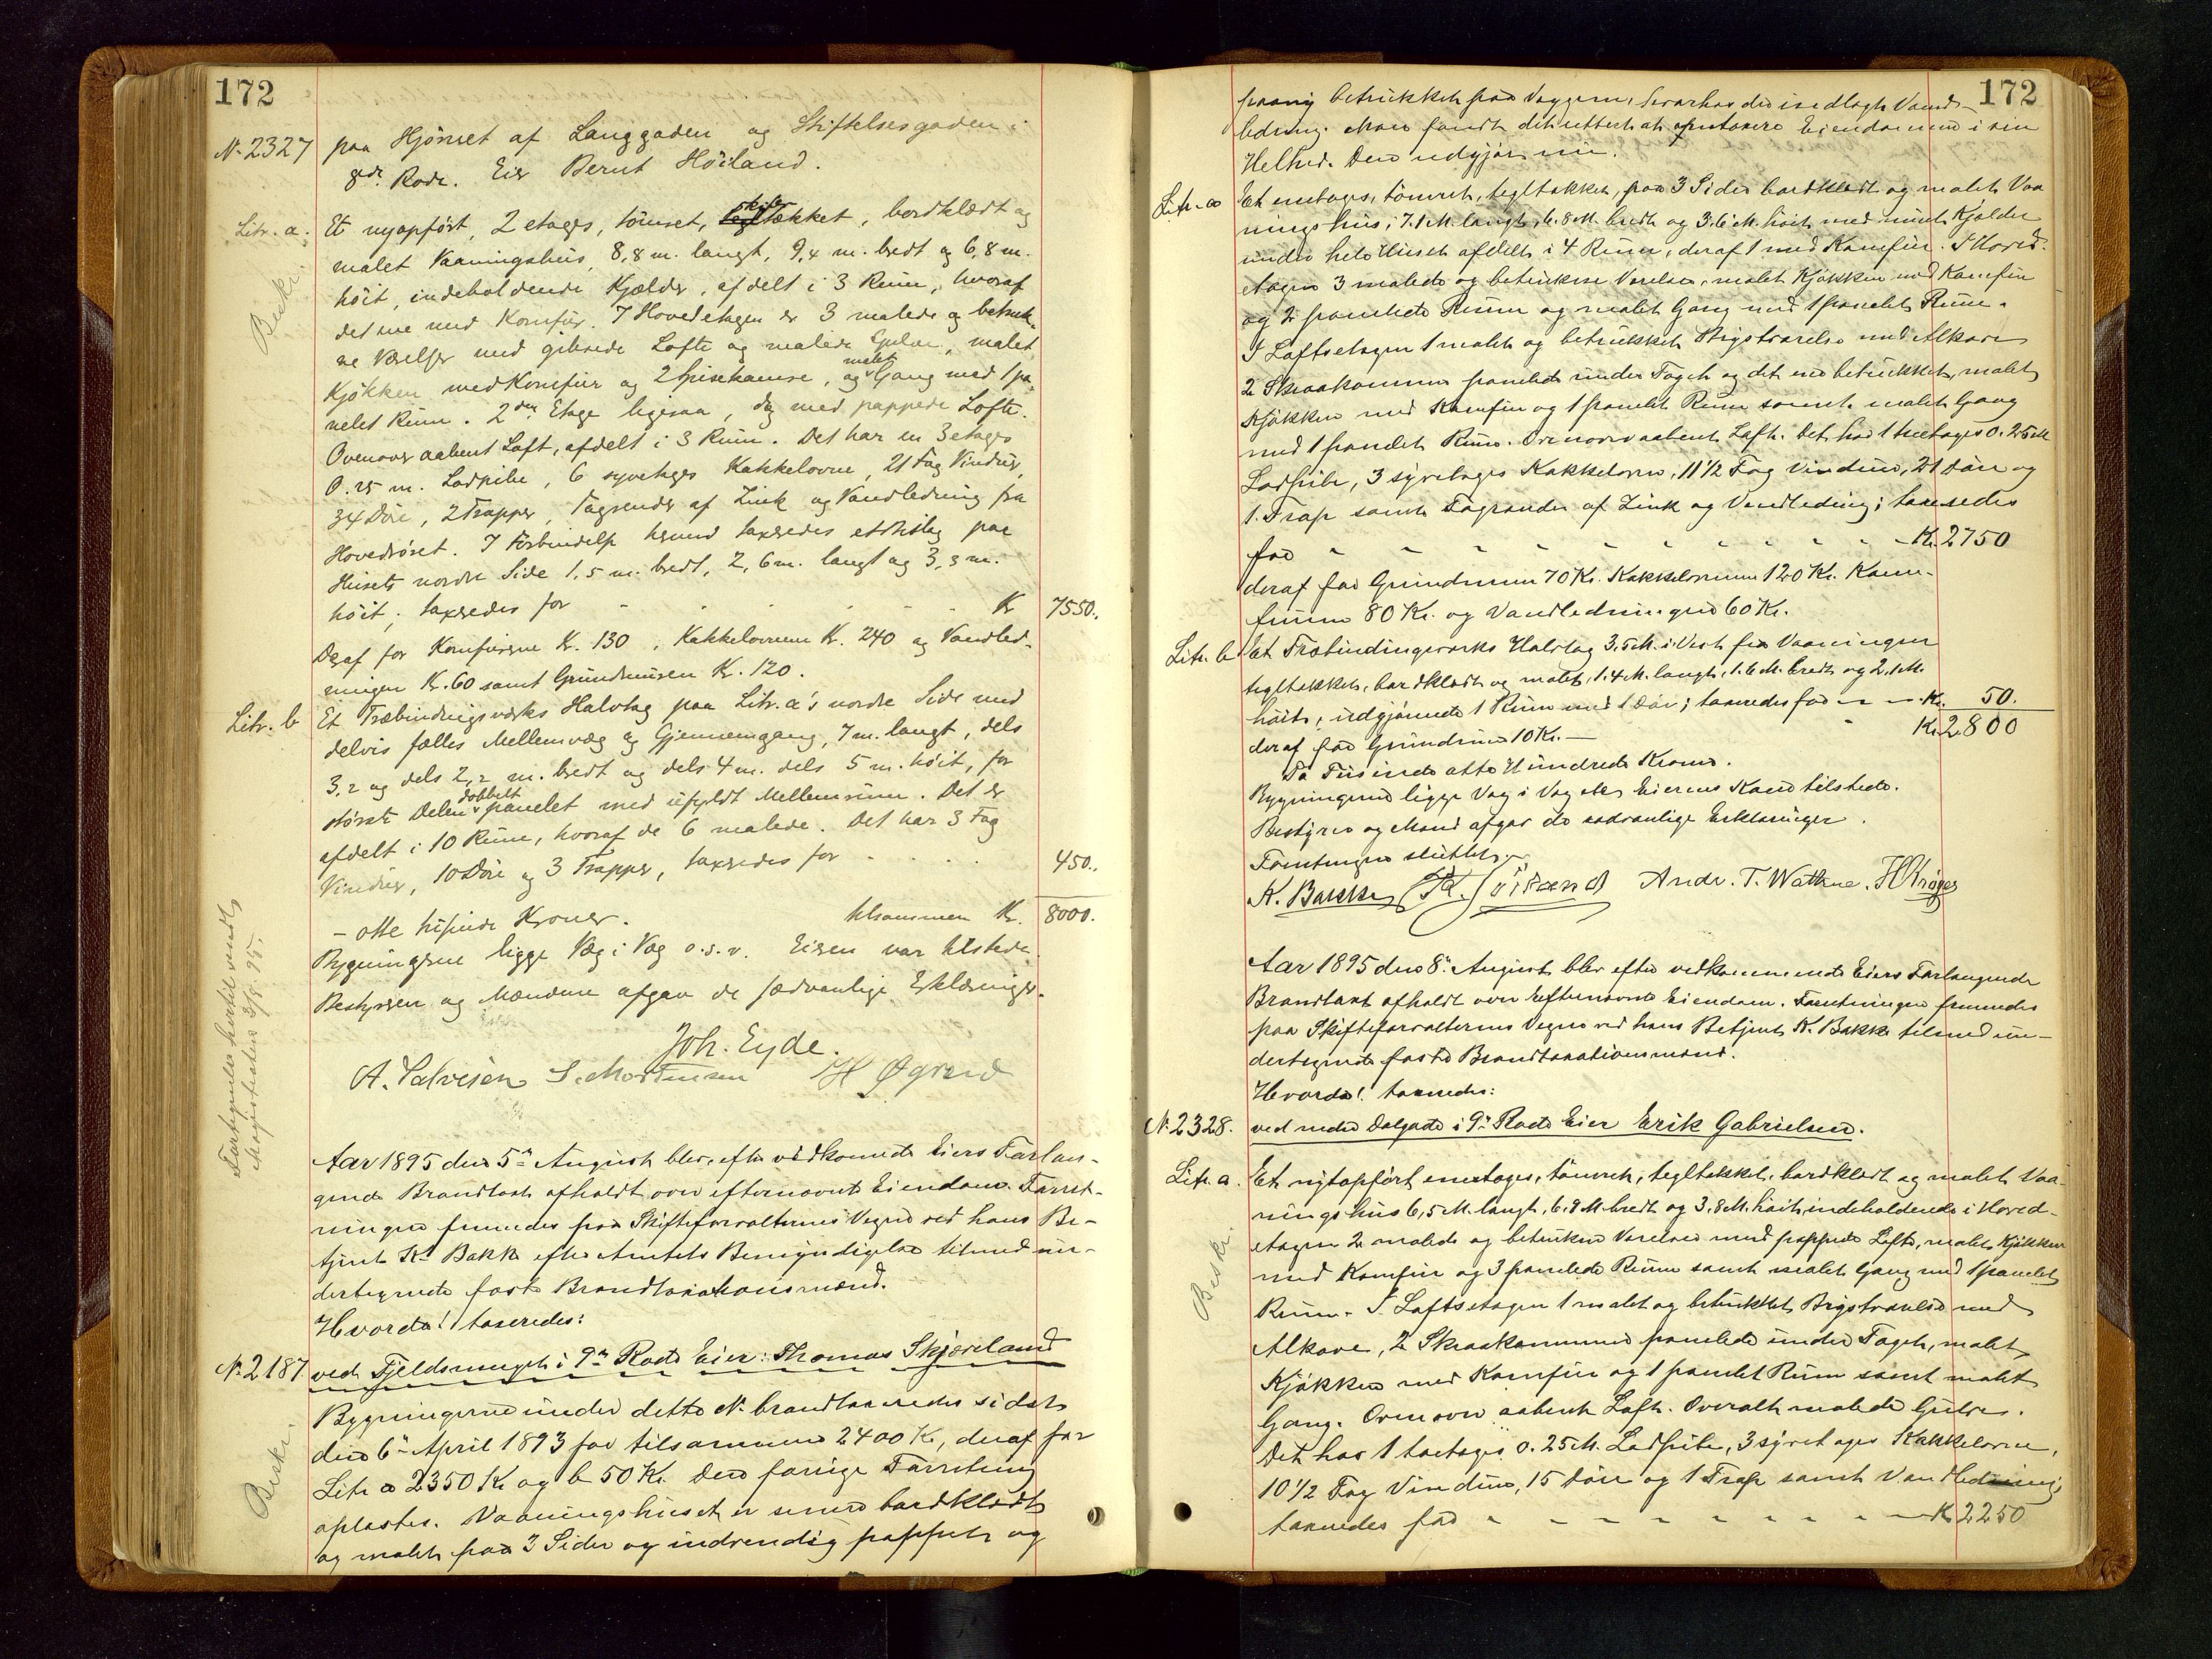 172
N. 2327 paa Hjørnet af Langgaden og Stiftelsesgaden i
8de Rode. Eier Bernt Höiland.
Litr. a. Et nyopført, 2 etages, tömret, skifertækket, bordklædt og
malet Vaaningshus, 8,8 m. langt, 9,4 m. bredt og 6,8 m.
höit, indeholdende Kjælder, afdelt i 3 Rum, hvoraf
det ene med Komfür. I Hovedetagen er 3 malede og betruk-
ne Værelser med gibsede Lofte og malede Gulve, malet
Kjökken med Komfür og 2 Spisekamre, og malet Gang med 1 pa-
nelet Rum. 2den Etage ligesaa, dog med pappede Lofte.
Ovenover aabent Loft, afdelt i 3 Rum. Det har en 3 etages
0.25 m. Lodpibe, 6 syvetages Kakkelovne, 21 Fag Vinduer,
34 Döre, 2 Trapper, Tagrender af Zink og Vandledning fra
Hovedröret. I Forbindelse hermed taxeredes et Bislag paa
Husets nordre Side 1,5 m. bredt, 2,6 m. langt og 3,3 m.
höit; taxeredes for - - - - - Kr 7550.
Deraf for Komfürerne Kr. 130, Kakkelovnene Kr. 240 og Vandled-
ningen Kr. 60 samt Grundmuren Kr. 120.
Litr. b Et Træbindingsværks Halvtag paa Litr. a's nordre Side med
delvis fælles Mellemvæg og Gjennemgang, 7 m. langt, dels
3,2 og dels 2,2 m. bredt og dels 4 m. dels 5 m. höit, for
störste Delen dobbelt panelet med ufyldt Mellemrum. Det er
afdelt i 10 Rum, hvoraf de 6 malede. Det har 3 Fag
Vinduer, 10 Döre og 3 Trapper, taxeredes for - - - - 450.
- otte tusinde Kroner. tilsammen Kr. 8000.
Bygningerne ligge Væg i Væg o.s.v. Eieren var tilstede.
Bestyreren og Mændene afgav de sædvanlige Erklæringer.
Joh. Eyde.
A. Salvesen S. Mortensen
Beskr.
Magistraten 3/8. 95.
Aar 1895 den 5te August blev, efter vedkomende Eiers Forlan-
gende Brandtaxt afholdt over efternævnte Eiendom. Forret-
ningen fremmedes paa Skifteforvalterens Vegne ved hans Be-
tjent K. Bakke efter Amtets Bemyndigelse tilmed un-
dertegnede faste Brandtaxationsmænd.
Hvorda! taxeredes:
N. 2187 ved Fjeldsmuget i 9de Rode Eier: Thomas Skjæveland
Bygningerne under dette N. brandtaxeredes sidst
den 6te April 1893 for tilsammen 2400 Kr, deraf for
Litr a 2350 Kr og b 50 Kr. Den forrige Forretning
oplæstes. Vaaningshuset er senere bordklædt
og malet paa 3 Sider og indvendig pappet og
Beskr.
172
paany betrukket paa Væggene, hvorhos der er indlagt Vand-
ledning. Man fandt det rettest at omtaxere Eiendommen i sin
Helhed. Den udgjør nu.
Litr. a Et enetages, tömret, tegltækket, paa 3 Sider bordklædt og malet Vaa
ningshus, 7.1 M. langt, 6.8 M. bredt og 3.6 M. höit med muret Kjælder
under hele Huset afdelt i 4 Rum, deraf 1 med Komfür. I Hoved-
etagen 3 malede og betrukne Værelser, malet Kjökken med Komfür
og 2 panelede Rum og malet Gang med 1 panelet Rum.
I Loftsetagen 1 malet og betrukket Kvistværelse med Alkove
2 Skraakammer panelede under Taget og det ene betrukket, malet
Kjökken med Komfür og 1 panelet Rum samt malet Gang
med 1 panelet Rum. Ovenover aabent Loft. Det har 1 toetages 0.25 M
Lodpibe, 3 syvetages Kakkelovne, 11 1/2 Fag Vinduer, 21 Döre og
1 Trap samt Tagrender af Zink og Vandledning; taxeredes
for - - - - - - - - Kr. 2750
deraf for Grundmuren 70 Kr. Kakkelovnene 120 Kr. Kom-
fürene 80 Kr. og Vandledningen 60 Kr.
Litr. b Et Træbindingsværks Halvtag 3,5 M. i Vest fra Vaaningen
tegltækket, bordklædt og malet, 1.4 M. langt, 1.6 M. bredt og 2.1 M.
höit, udgjørende 1 Rum med 1 Dör; taxeredes for - - Kr. 50.
deraf for Grundmur 10 Kr. — Kr. 2800
To Tusinde otte Hundrede Kroner.
Bygningerne ligge Væg i Væg etc. Eierens Kone tilstede.
Bestyrer og Mænd afgav de sædvanlige Erklæringer.
Forretningen sluttet.
K. Bakke Andr. T. Watne. H Kröger
Aar 1895 den 8de August blev efter vedkommende Eiers Forlangende
Brandtaxt afholdt over efternævnte Eiendom. Forretningen fremmedes
paa Skifteforvalterens Vegne ved hans Betjent K. Bakke tilmed un-
dertegnede faste Brandtaxationsmænd.
Hvorda! taxeredes:
N. 2328. ved nedre Dalgade i 9de Rode Eier Erik Gabrielsen.
Litr. a. Et nytopfört enetages, tömret, tegltækket, bordklædt og malet Vaa-
ningshus 6,5 M. langt, 6.8 M. bredt og 3.8 M. höit, indeholdende i Hoved-
etagen 2 malede og betrukne Værelser med pappede Lofte, malet Kjökken
med Komfür og 3 panelede Rum samt malet Gang med 1 panelet
Rum. I Loftsetagen 1 malet og betrukket Kvistværelse med
Alkove, 2 Skraakammer panelede under Taget, malet
Kjökken med Komfür og 1 panelet Rum samt malet
Gang. Ovenover aabent Loft. Overalt malede Gulve.
Det har 1 toetages 0.25 M. Lodpibe, 3 syvetages Kakkelovne,
10 1/2 Fag Vinduer, 15 Döre og 1 Trap samt Vandledning;
taxeredes for - - - - - - - - Kr. 2250
Beskr.